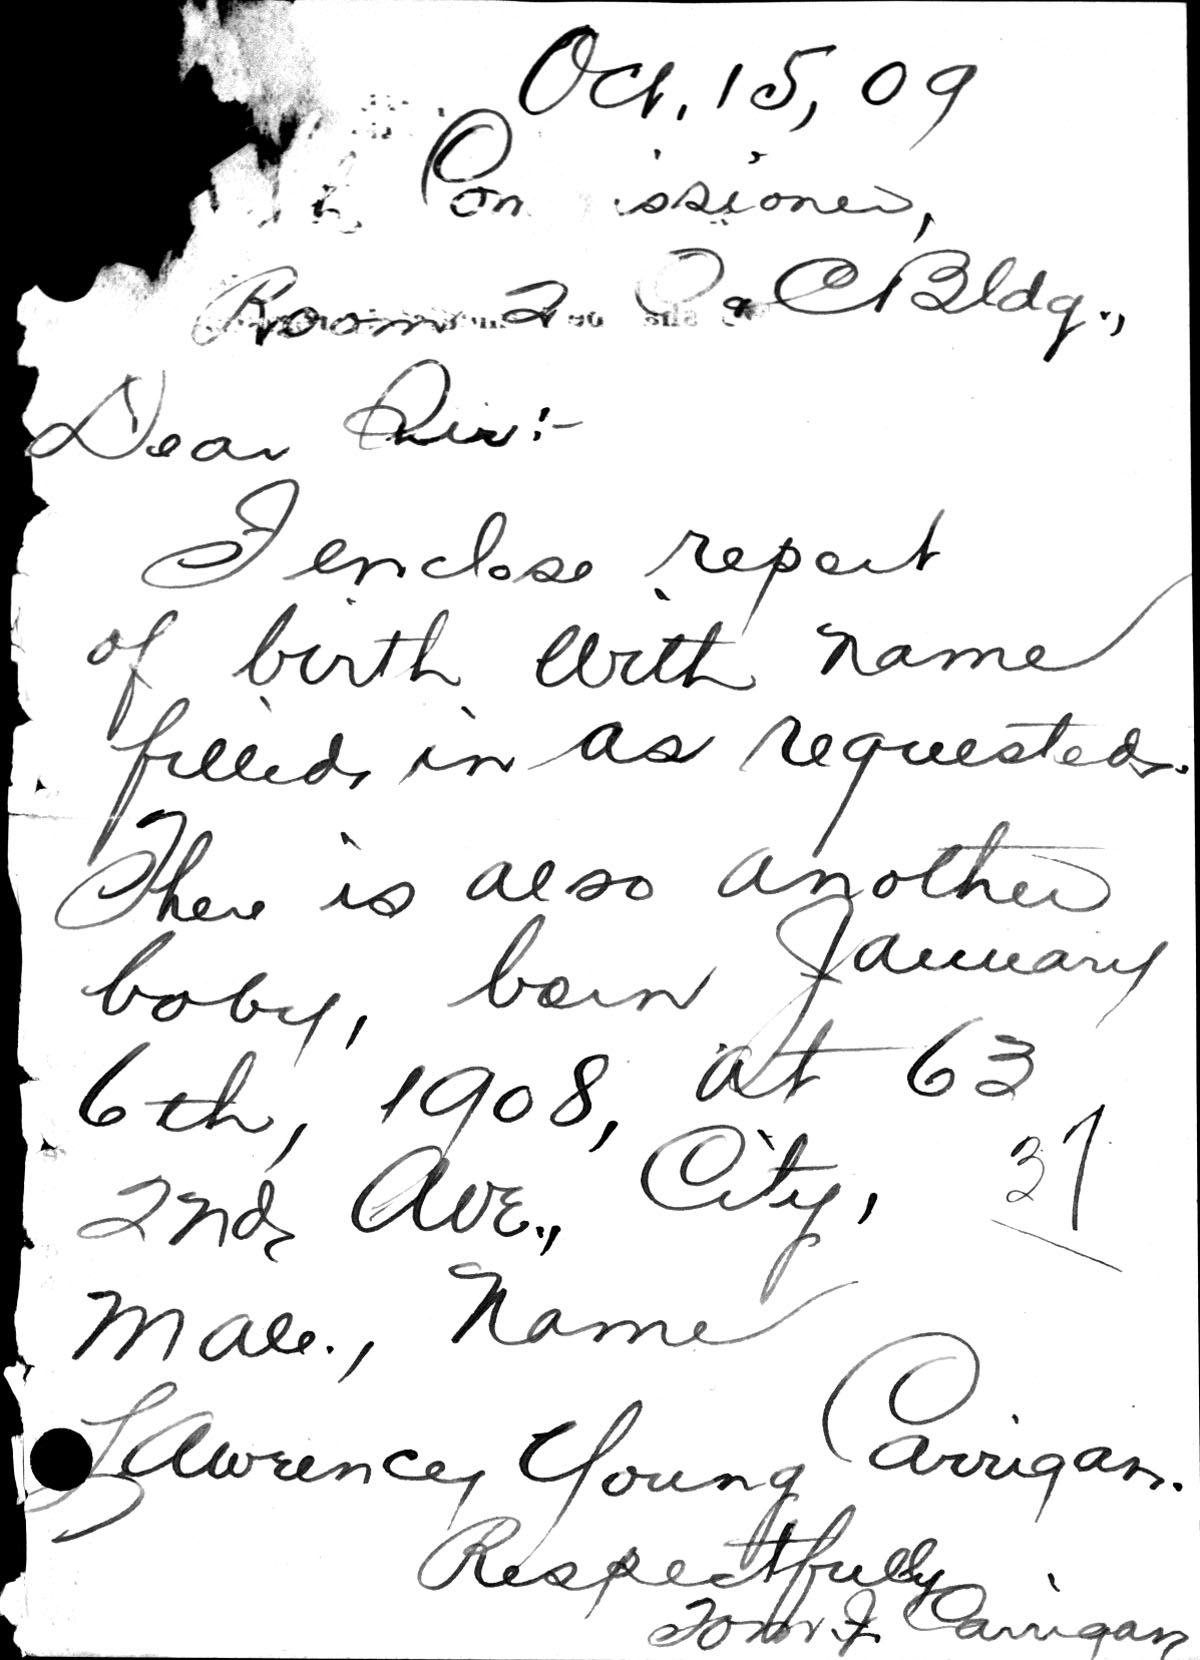 Oct. 15, 09
Com issioner,
Room 2 & C Bldg.,
Dear Sir:-
I enclose report
of birth with name
filled in as requested.
There is also another
boby, born January
6th, 1908, at 63
2nd Ave., City,
37
Male., Name
Lawrence Young Carrigan.
Respectfully
Tom. J. Carrigan